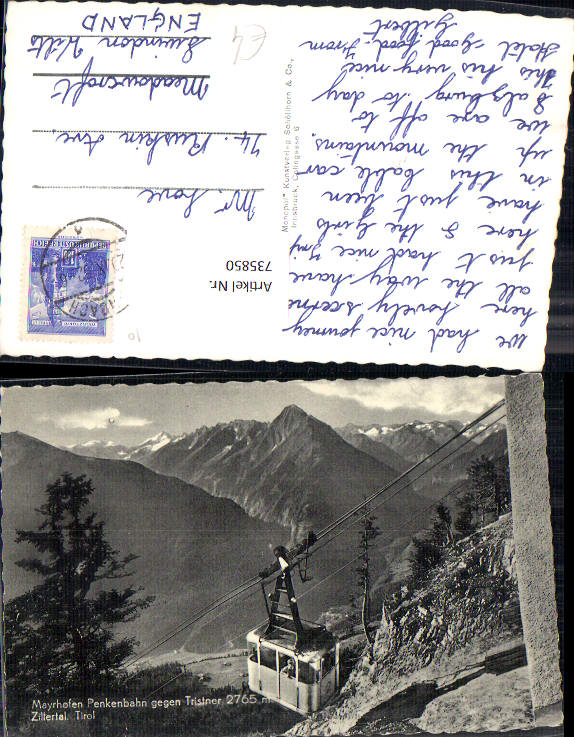 We had nice journey
here lovely scerne
all the way have
just had nice
here & the girls
have just been
in this cable car
up the mountains.
we are off to
Salzburg to day
this very nice
Hotel good food. from
Gilbert
Mr. Love
74. Ruskin Ave,
Meadowcroft
Swindon Wilts
ENGLAND
"Monopol" Kunstverlag Schöllhorn & Co.,
Innsbruck,
REPUBLIK ÖSTERREICH
Artikel Nr.
735850
Mayrhofen Penkenbahn gegen Tristner 2765 m
Zillertal, Tirol